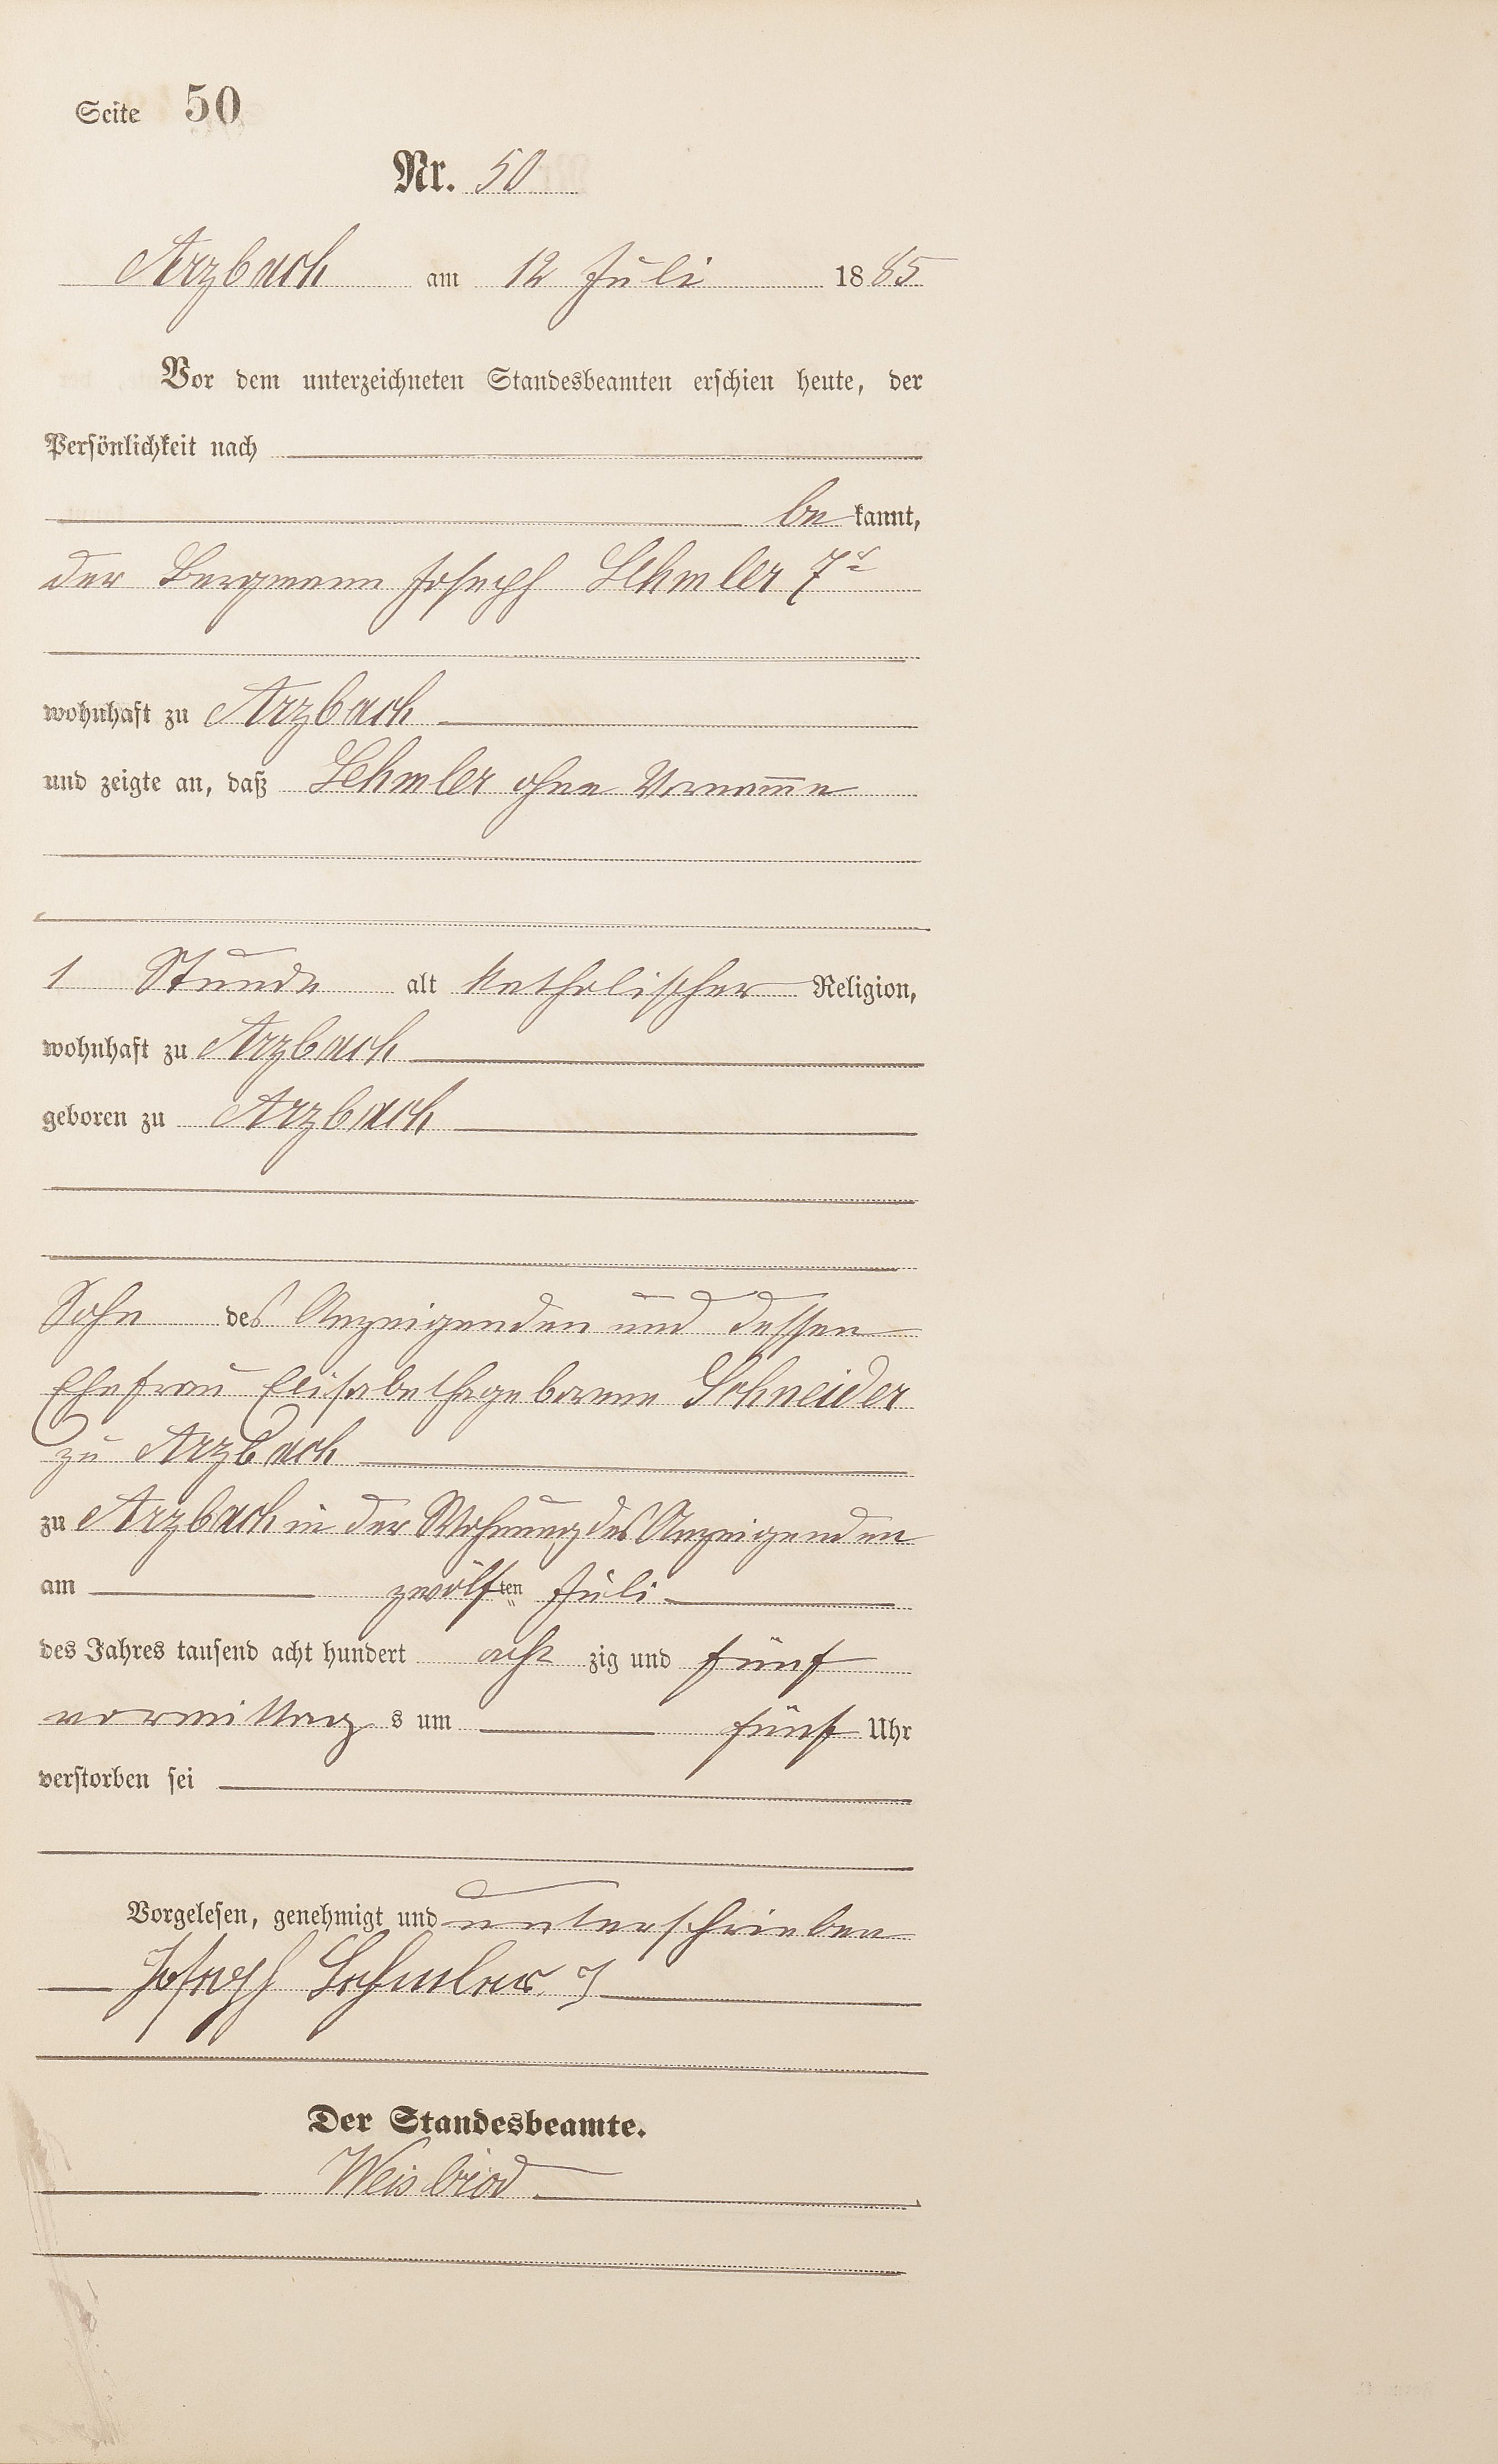 Seite 50
Nr. 50
Arzbach am 12 Juli 1885
Vor dem unterzeichneten Standesbeamten erschien heute, der
Persönlichkeit nach
be kannt,
der Bergmann Joseph Lehmler 7r
wohnhaft zu Arzbach
und zeigte an, daß Lehmler ohne Vornamen
1 Stunde alt katholischer Religion,
wohnhaft zu Arzbach
geboren zu Arzbach
Sohn des Anzeigenden und dessen
Ehefrau Elisabetha geborene Schneider
zu Arzbach
zu Arzbach in der Wohnung des Anzeigenden
am zwölften Juli
des Jahres tausend acht hundert acht zig und fünf
vormittag s um fünf Uhr
verstorben sei
Vorgelesen, genehmigt und unterschrieben
Joseph Lehmler 7
Der Standesbeamte.
Weisbrod